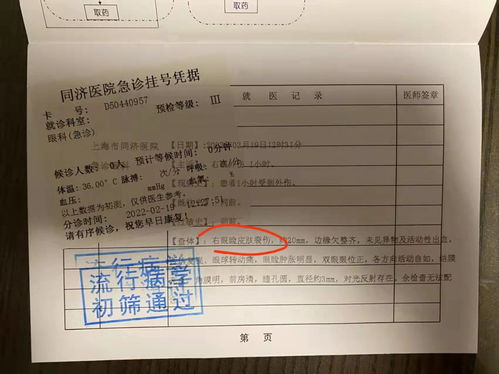 取药
取药
同济医院急诊挂号凭据
卡 号: D50440957 预检等级: III
就诊科室:
眼科(急诊)
候诊人数: 0人 预计等候时间: 0分钟
体温: 36.00℃ 脉搏: 次/分 呼吸: 次/分
血压: mmHg
以上数据为初测, 仅供医生参考。
分诊时间: 2022-02-19 (12:27:51)
请有序候诊, 祝您早日康复!
就 医 记 录
医师签章
上海市同济医院 【日期】
1小时。
患者1小时受到外伤。
【查体】: 右眼睑皮肤裂伤, 约20mm, 边缘欠整齐, 未见异物及活动性出血,
眼球转动痛, 眼睑肿胀明显, 双眼眼位正, 各方向活动自如, 结膜
角膜明, 前房清, 瞳孔圆, 直径约3mm, 对光反射存在, 余检查无法配
流行病学
初筛通过
第 页